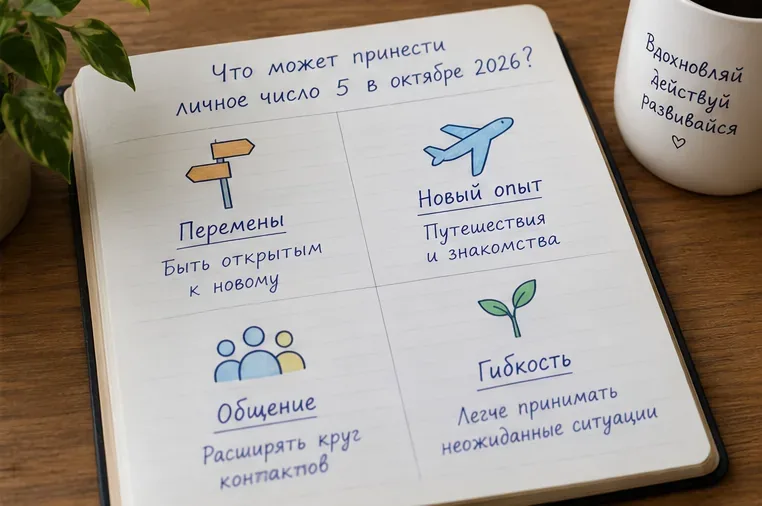 Что может принести
личное число 5 в октябре 2026?
Перемены
Быть открытым
к новому
Новый опыт
Путешествия
и знакомства
Общение
Расширять круг
контактов
Гибкость
Легче принимать
неожиданные ситуации
Вдохновляй
действуй
развивайся